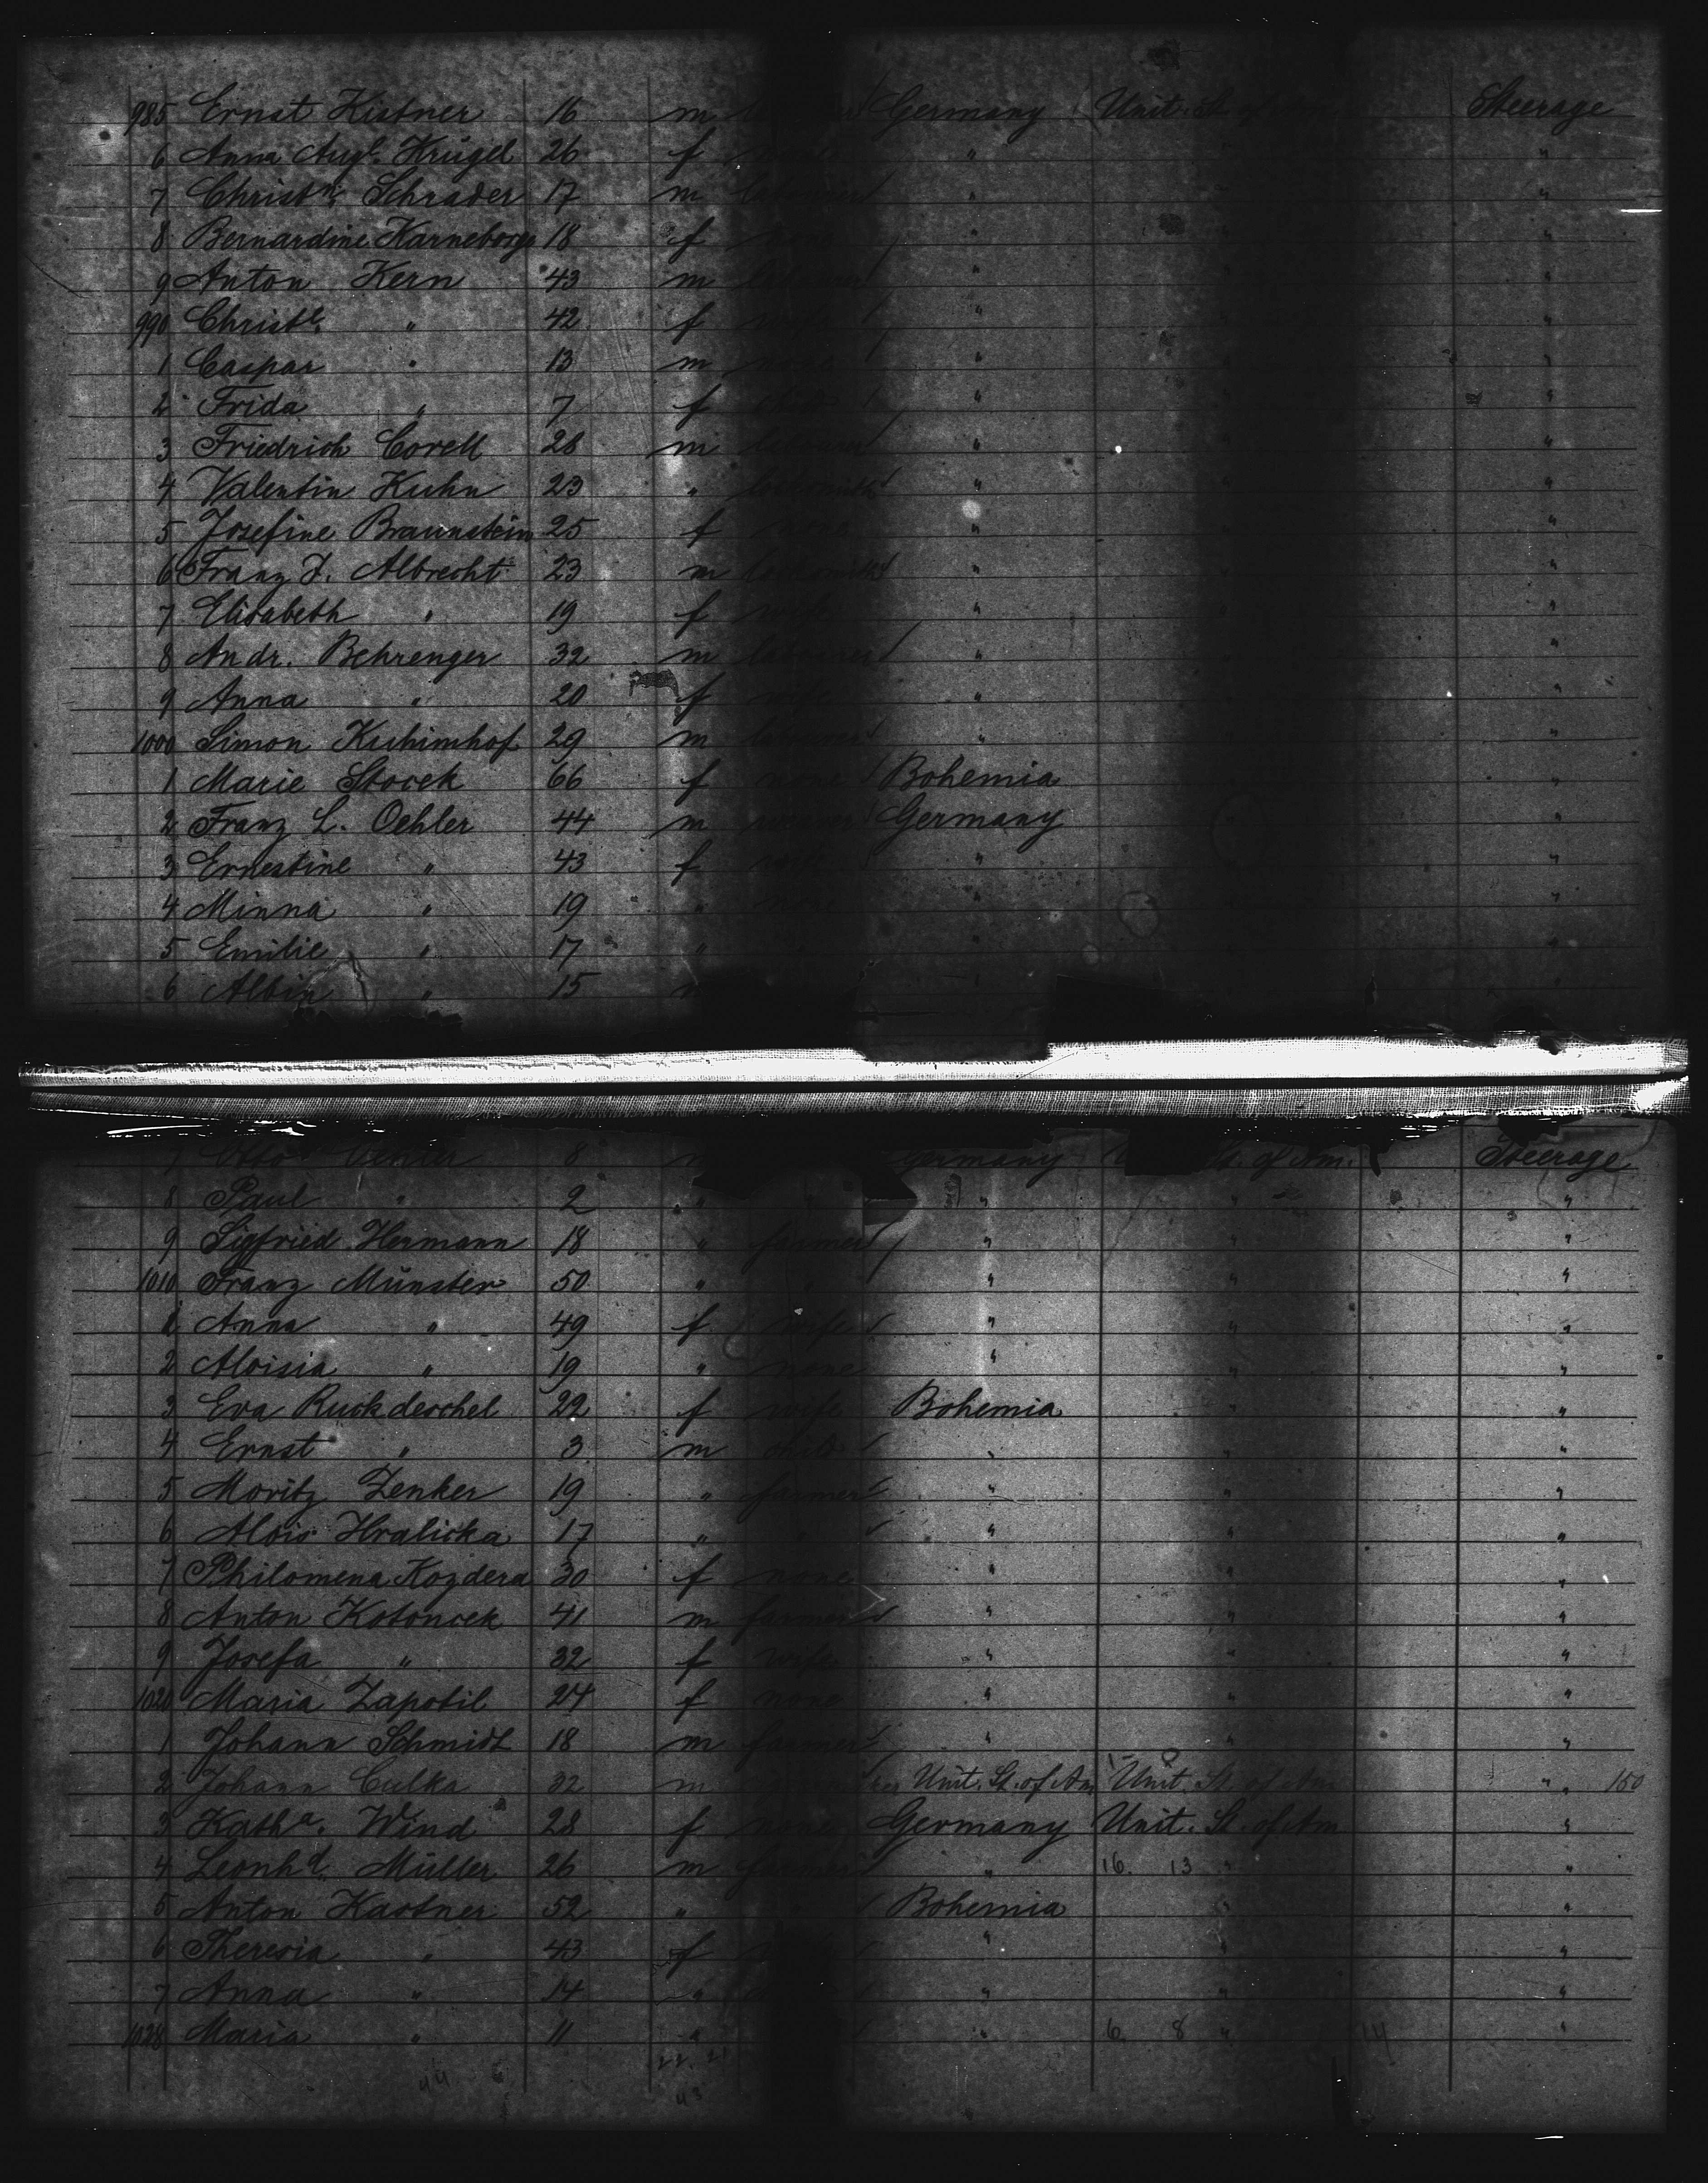 985 Ernst Kistner 16 m Germany Unit. St. of Steerage
6 Anna Aug. Krügel 26 f " "
7 Christn. Schrader 17 m labourer " "
8 Bernardine Karneborg 18 f none " "
9 Anton Kern 43 m labourer " "
990 Christe. " 42 f wife " "
1 Caspar " 13 m none " "
2 Frida " 7 f child " "
3 Friedrich Corell 28 m labourer " "
4 Valentin Kuhn 23 " locksmith " "
5 Josefine Braunstein 25 f none " "
6 Franz J. Albrecht 23 m locksmith " "
7 Elisabeth " 19 f wife " "
8 Andr. Behrenger 32 m labourer " "
9 Anna " 20 f wife " "
1000 Simon Kuhimhof 29 m labourer " "
1 Marie Storek 66 f none Bohemia "
2 Franz L. Oehler 44 m Germany "
3 Ernestine " 43 f wife " "
4 Minna " 19 " none " "
5 Emilie " 17 " " "
6 Albin " 15 " "
7 Otto Oehler 8 Germany St. of Am. Steerage
8 Paul " 2 " " " " "
9 Sigfried Hermann 18 " farmer " " "
1010 Franz Münster 50 " " " " "
1 Anna " 49 f wife " " "
2 Aloisia " 19 " none " " "
3 Eva Ruckdeschel 22 f wife Bohemia " "
4 Ernst " 3 m child " " "
5 Moritz Zenker 19 " farmer " " "
6 Alois Hralicka 17 " " " "
7 Philomena Kozdera 30 f none " " "
8 Anton Kotoncek 41 m farmer " " "
9 Josefa " 32 f wife " " "
1020 Maria Zapotil 24 f none " " "
1 Johann Schmidt 18 m farmer " " "
2 Johann Culka 32 m Unit. St. of Am. Unit. St. of Am " 150
3 Katha. Wind 28 f none Germany Unit. St. of Am "
4 Leonhd. Müller 26 m farmer " 16. 13 " "
5 Anton Kastner 52 " " Bohemia " "
6 Theresia " 43 f " " "
7 Anna " 14 " " " "
1028 Maria " 11 " " 6 8 " 14 "
44 22. 21
43